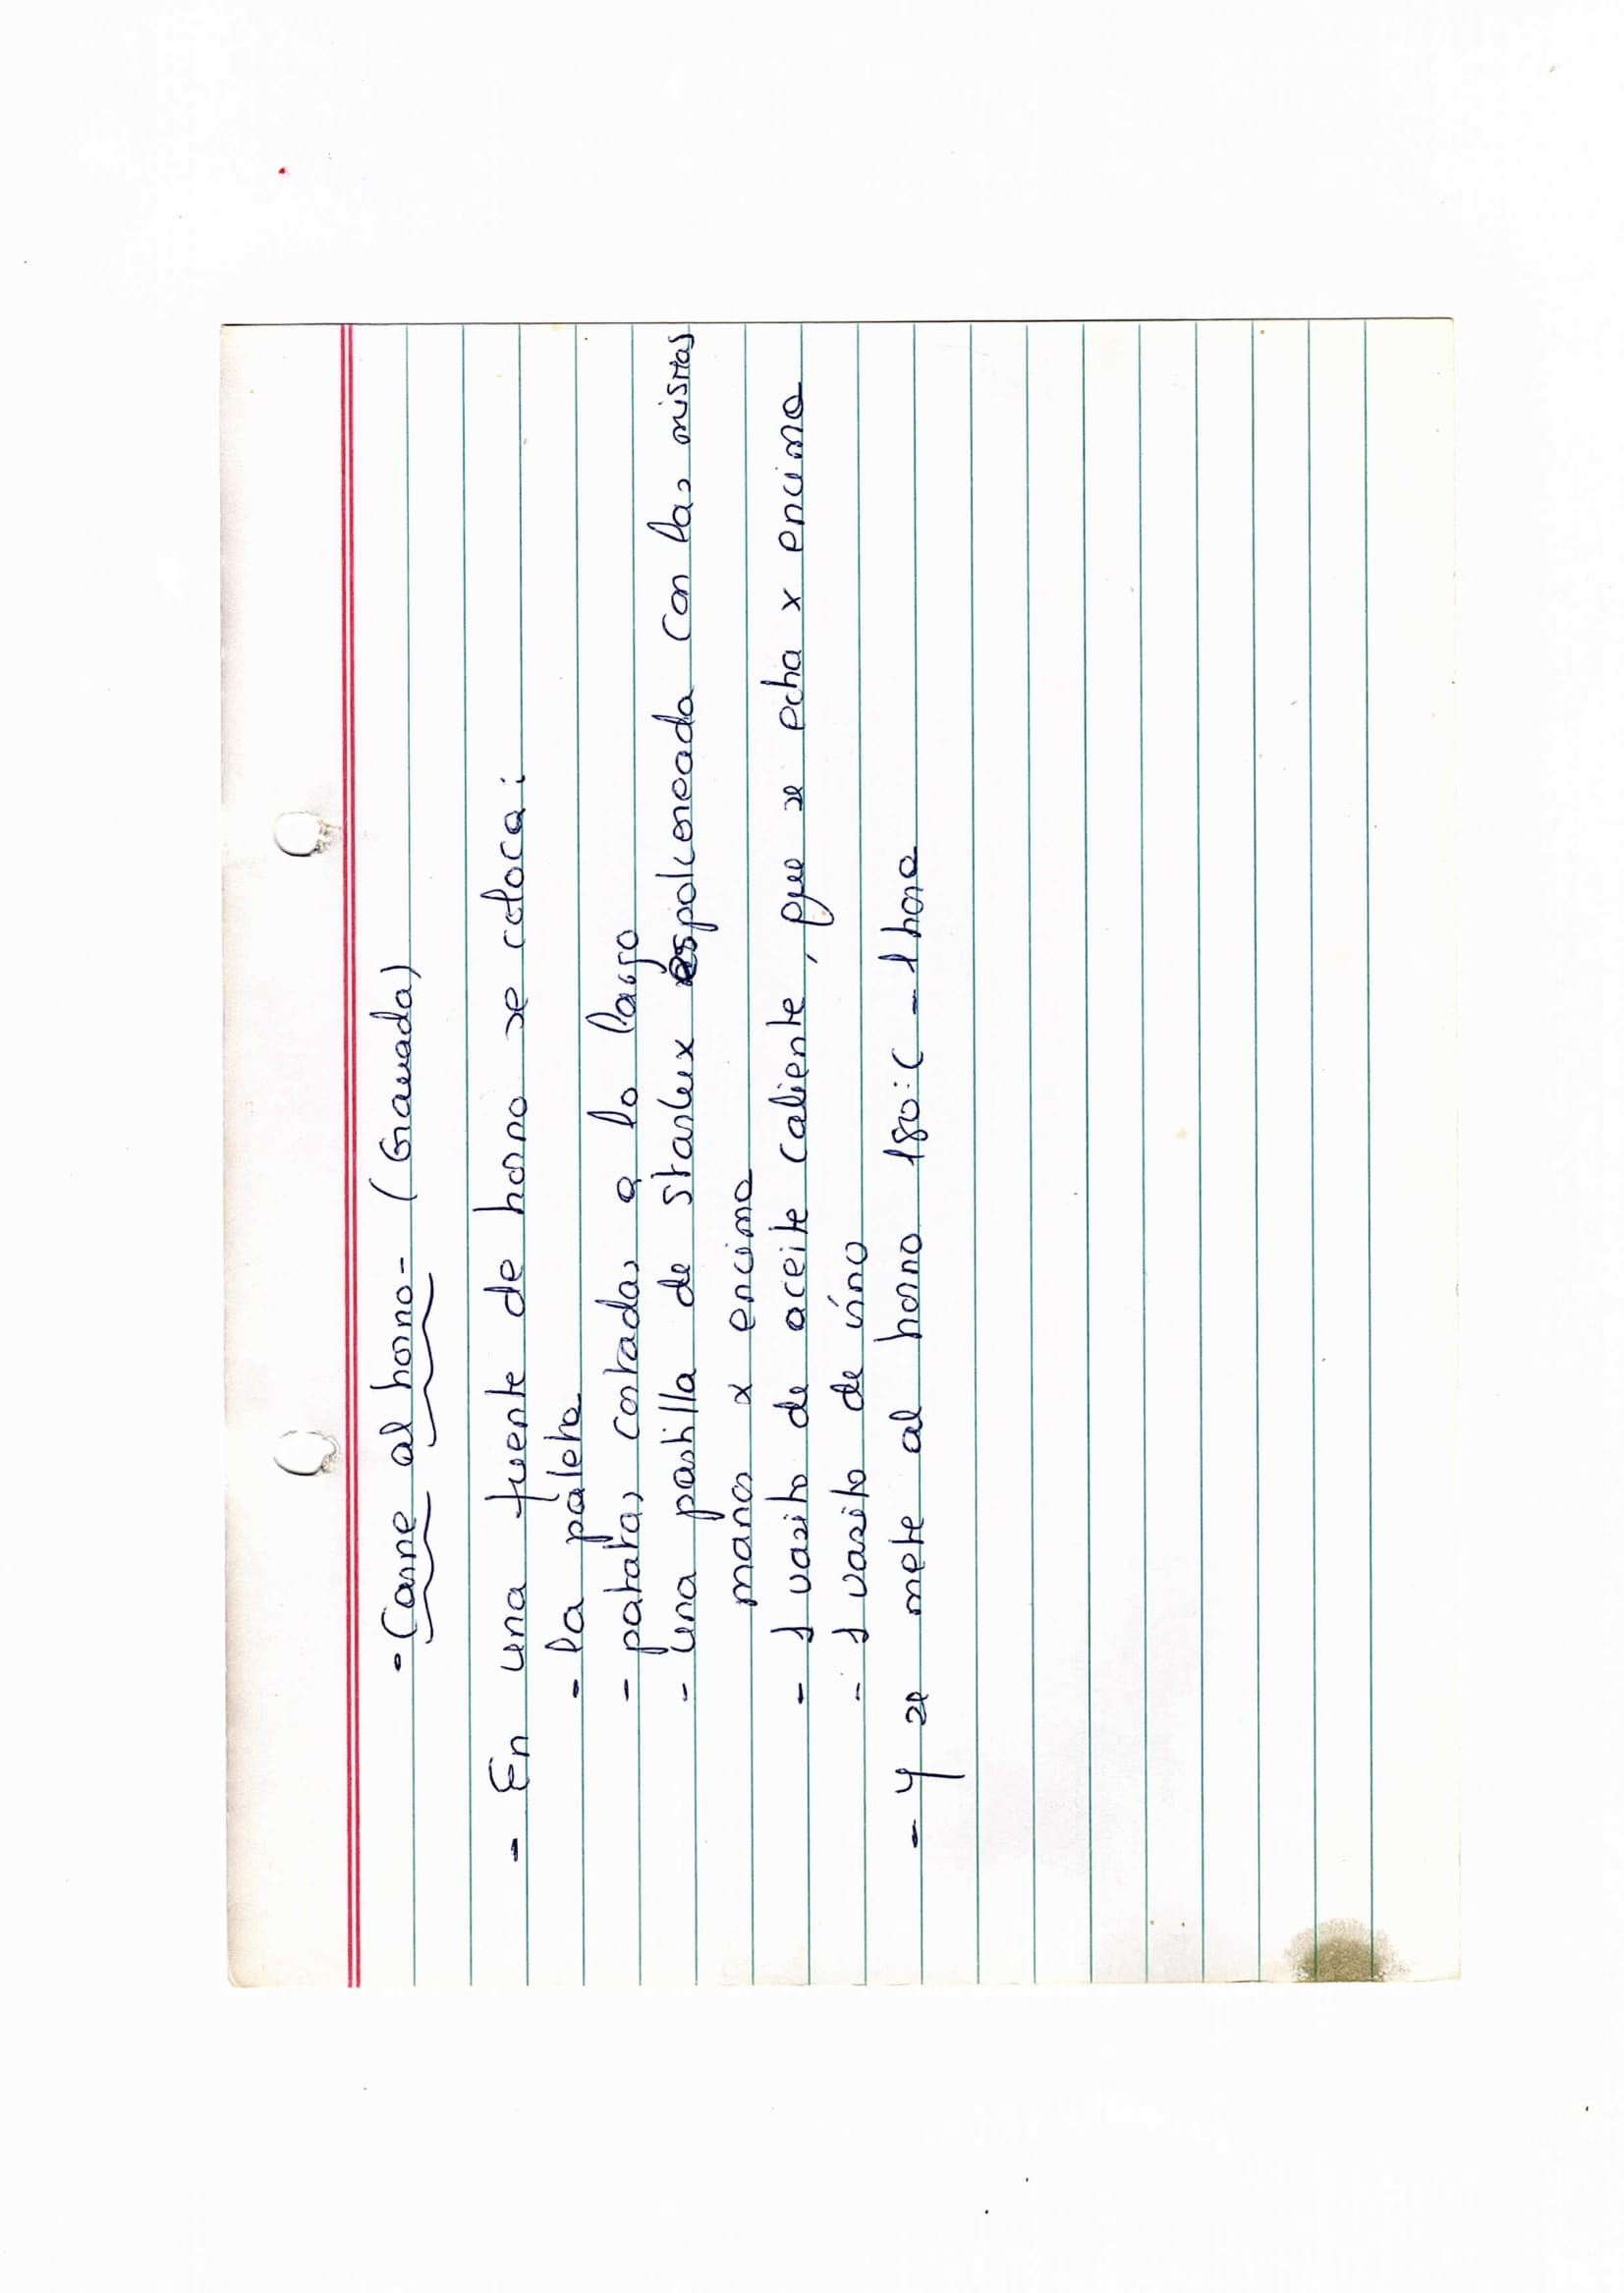 - Carne al horno - (Granada)
- En una fuente de horno se coloca:
- la paleta
- patatas cortadas a lo largo
- una pastilla de starlux espolcoreada con las mismas
manos x encima
- 1 vasito de aceite caliente, que se echa x encima
- 1 vasito de vino
- Y se mete al horno 180:C - 1 hora